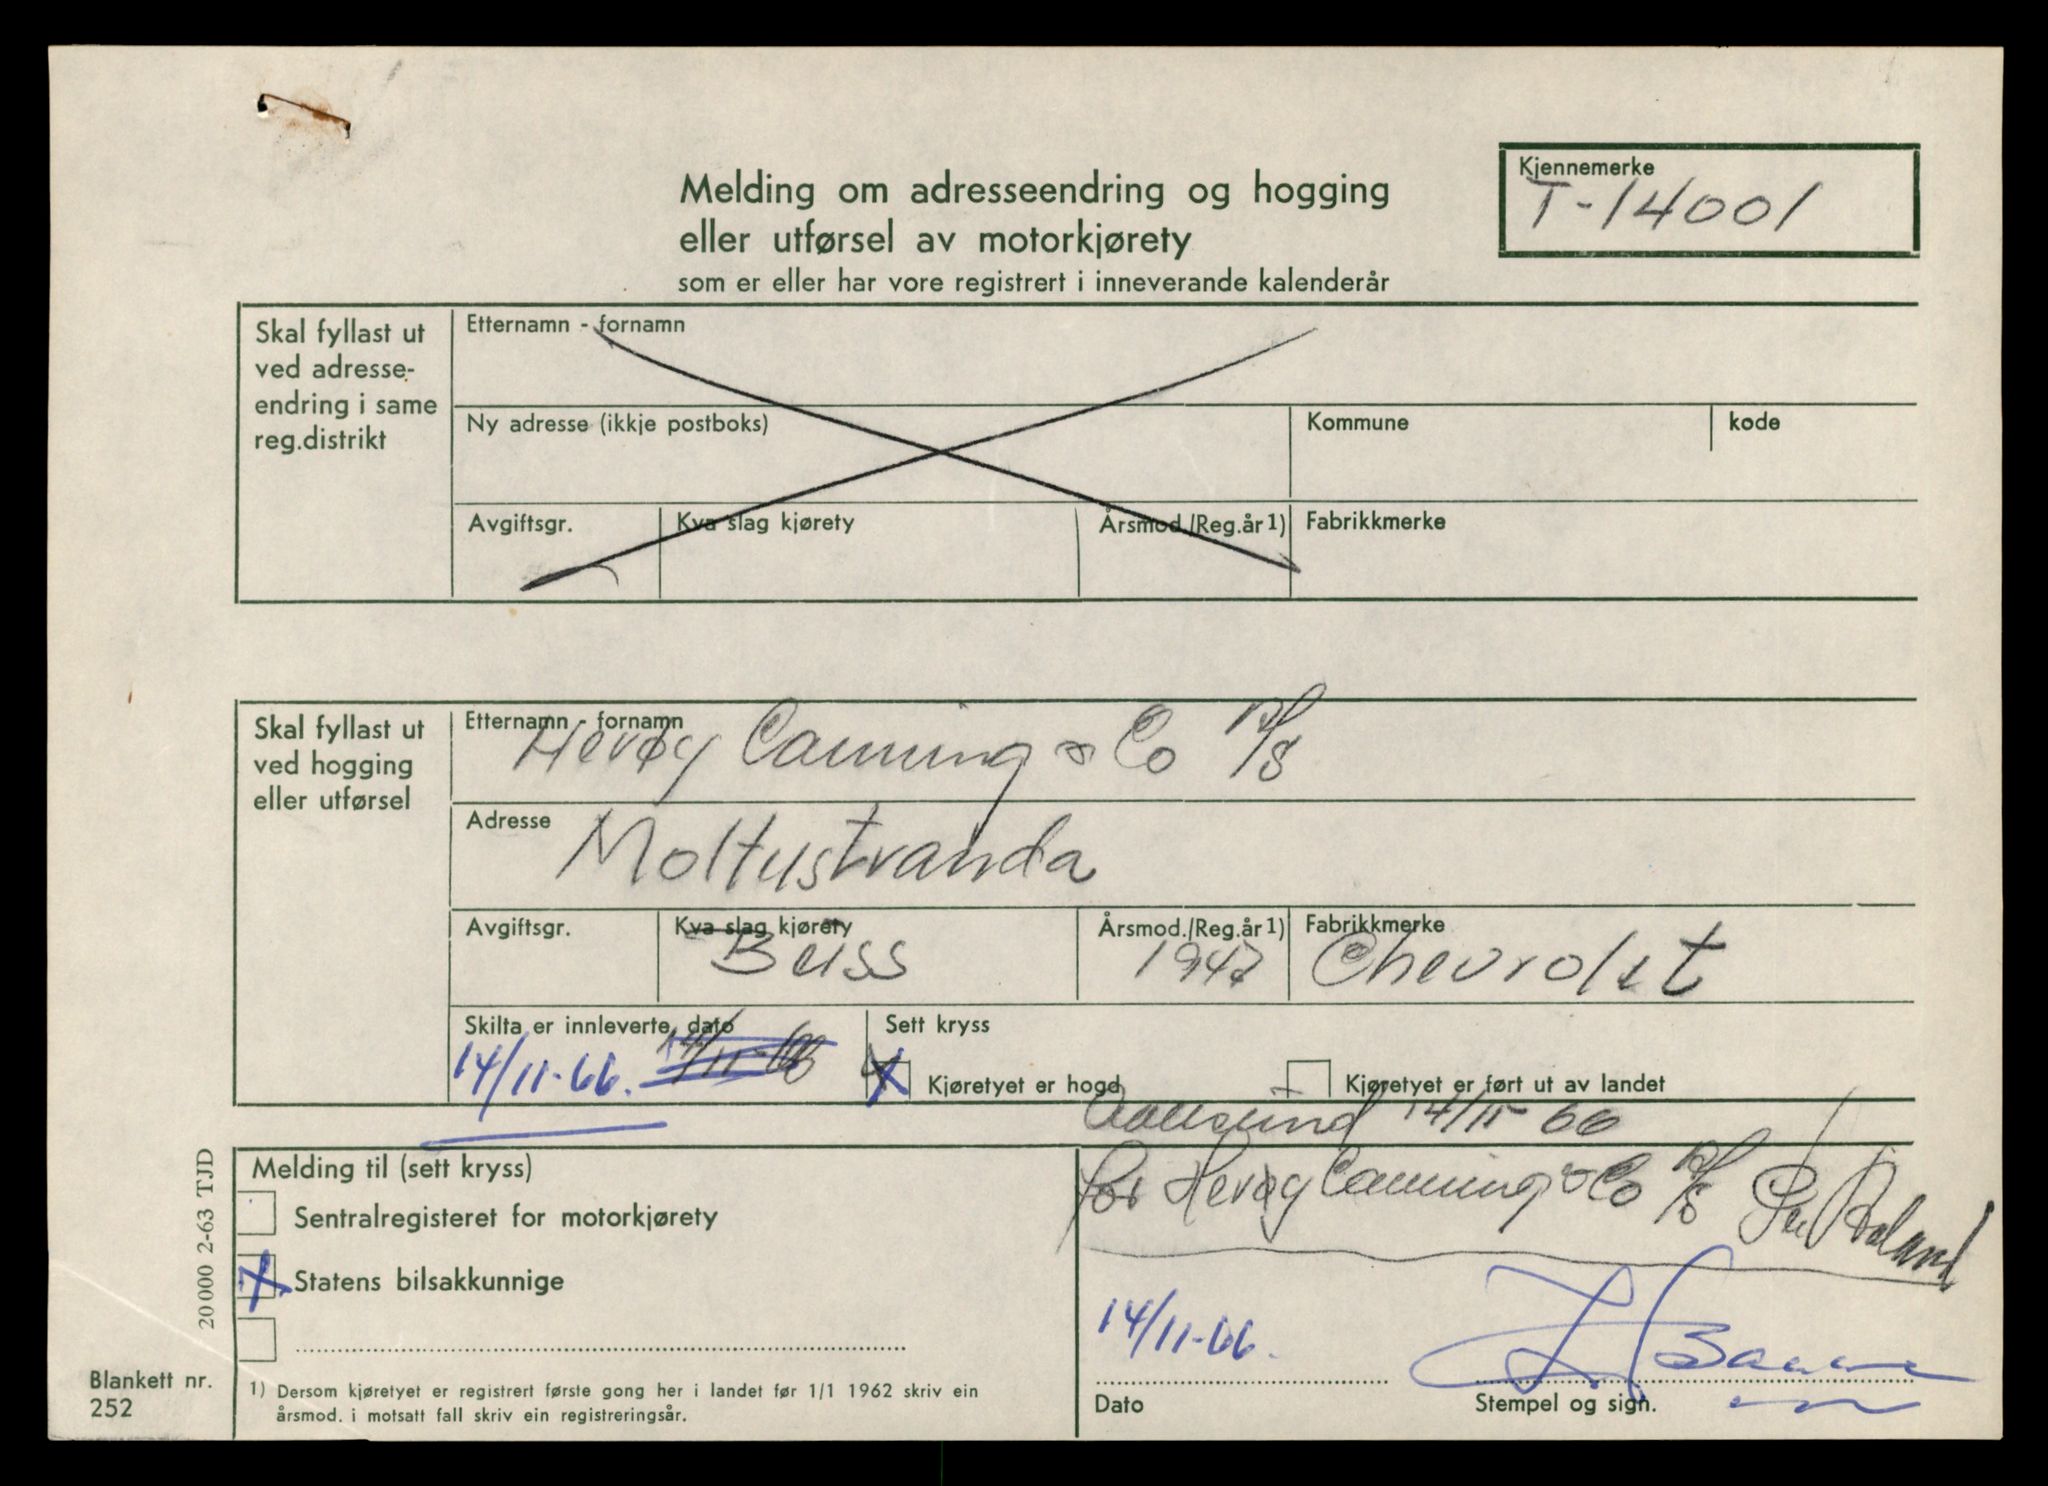 Melding om adresseendring og hogging
eller utførsel av motorkjørety
som er eller har vore registrert i inneverande kalenderår
Kjennemerke
T-14001
Skal fyllast ut
ved adresse-
endring i same
reg.distrikt
Etternamn - fornamn
Ny adresse (ikkje postboks)
Kommune
kode
Avgiftsgr.
Kva slag kjørety
Årsmod./Reg.år 1)
Fabrikkmerke
Skal fyllast ut
ved hogging
eller utførsel
Etternamn - fornamn
Herøy Canning & Co A/S
Adresse
Moltustranda
Avgiftsgr.
Kva slag kjørety
Buss
Årsmod./Reg.år 1)
1947
Fabrikkmerke
Chevrolet
Skilta er innleverte, dato
14/11-66. 14/11-66
Sett kryss
X Kjøretyet er hogd
Kjøretyet er ført ut av landet
Aalesund 14/11 66
Melding til (sett kryss)
Sentralregisteret for motorkjørety
X Statens bilsakkunnige
for Herøy Canning & Co A/S
14/11-66.
Dato
Stempel og sign.
1) Dersom kjøretyet er registrert første gong her i landet før 1/1 1962 skriv ein
årsmod. i motsatt fall skriv ein registreringsår.
Blankett nr.
252
20 000 2-63 TJD